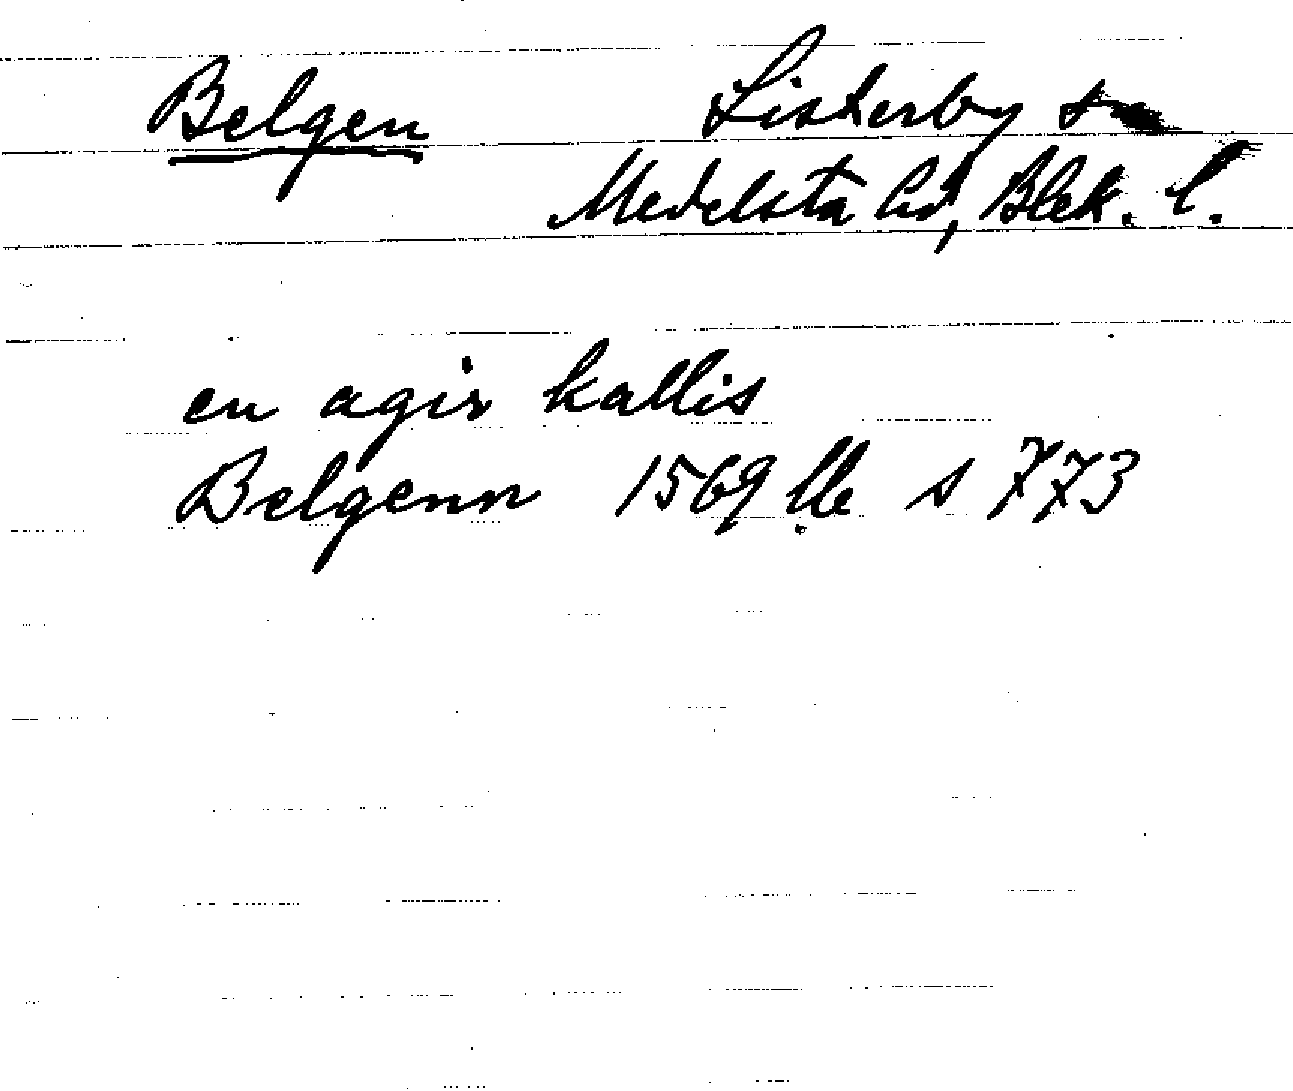 Belgen Listerby sn
Medelsta hd, Blek. l.
en agir kallis
Belgenn 1569 lle s 773